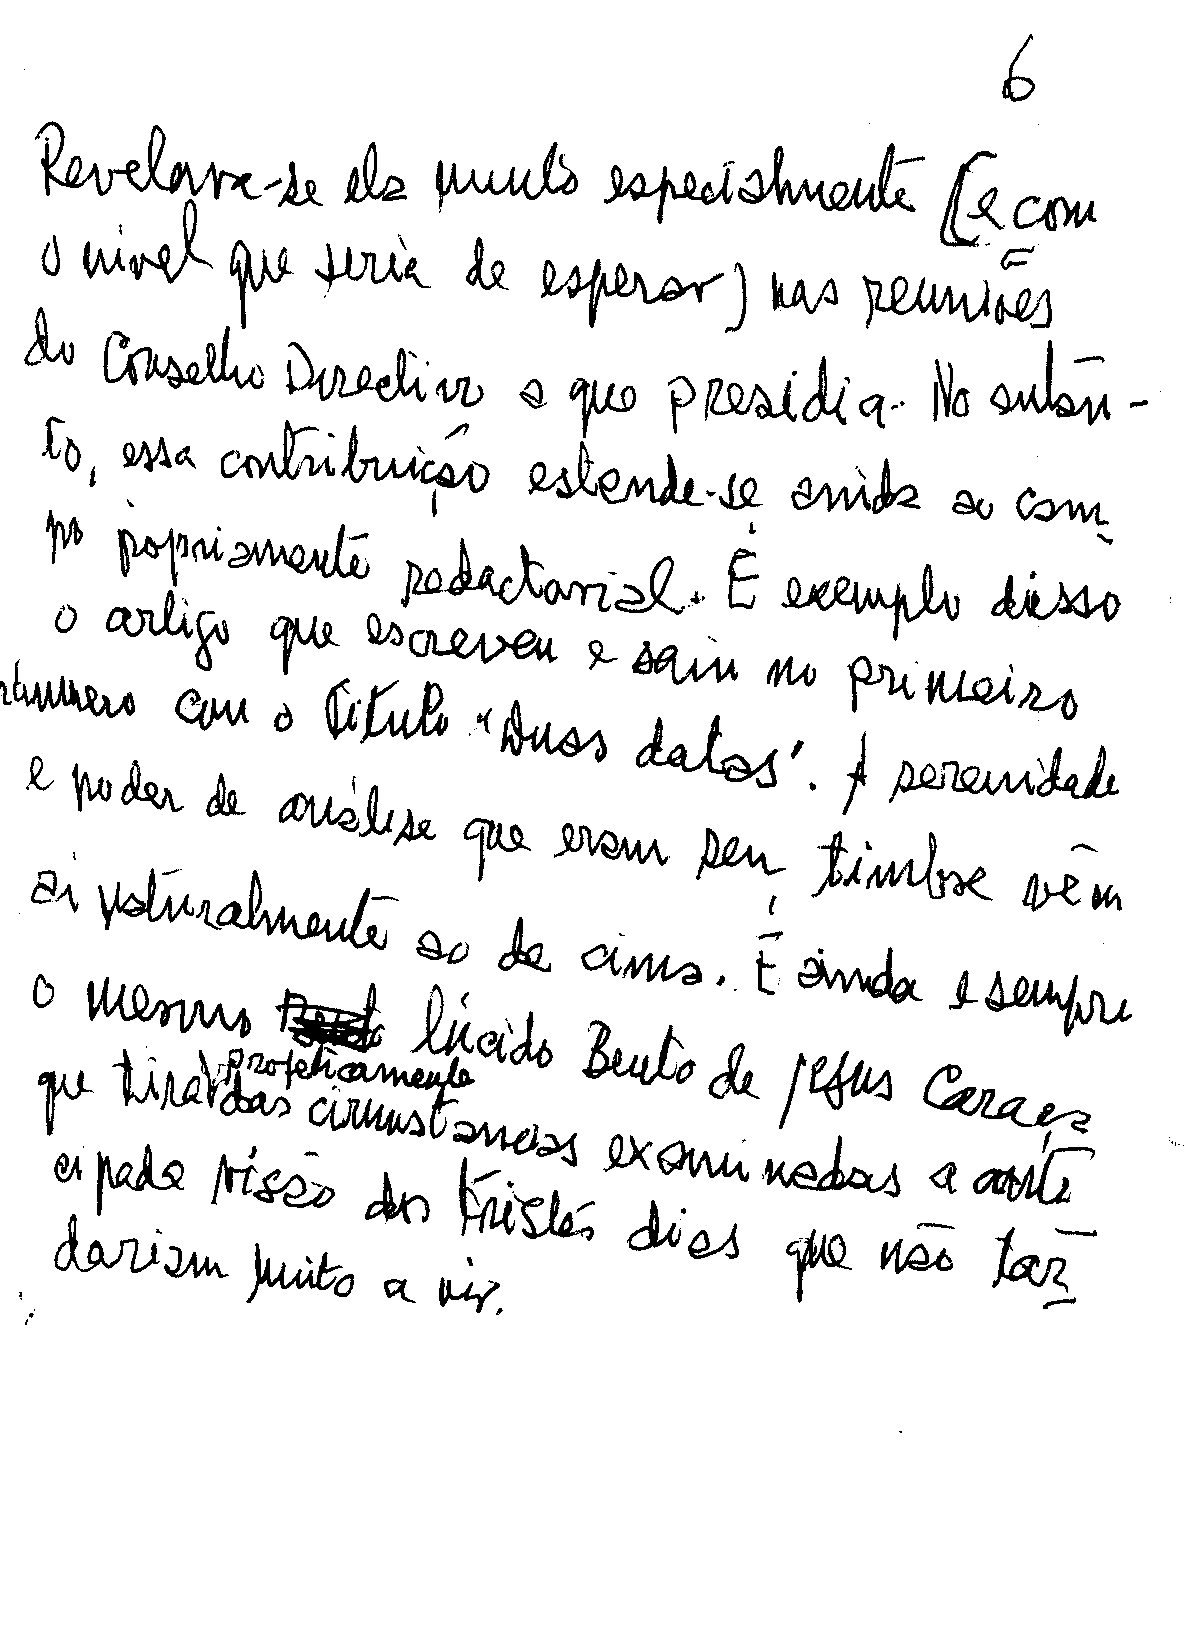 6
Revelava-se ela muito especialmente (e com
o nível que seria de esperar) nas reuniões
do Conselho Directivo a que presidia. No entan-
to, essa contribuição estende-se ainda ao cam-
po propriamente redactorial. É exemplo disso
o artigo que escreveu e saiu no primeiro
número com o título "Duas datas". A serenidade
e poder de análise que eram seu timbre vêm
aí naturalmente ao de cima. É ainda e sempre
o mesmo lúcido Bento de Jesus Caraça
profeticamente
que tirava das circunstancias examinadas a ante
cipada visão dos tristes dias que não tar-
dariam muito a vir.